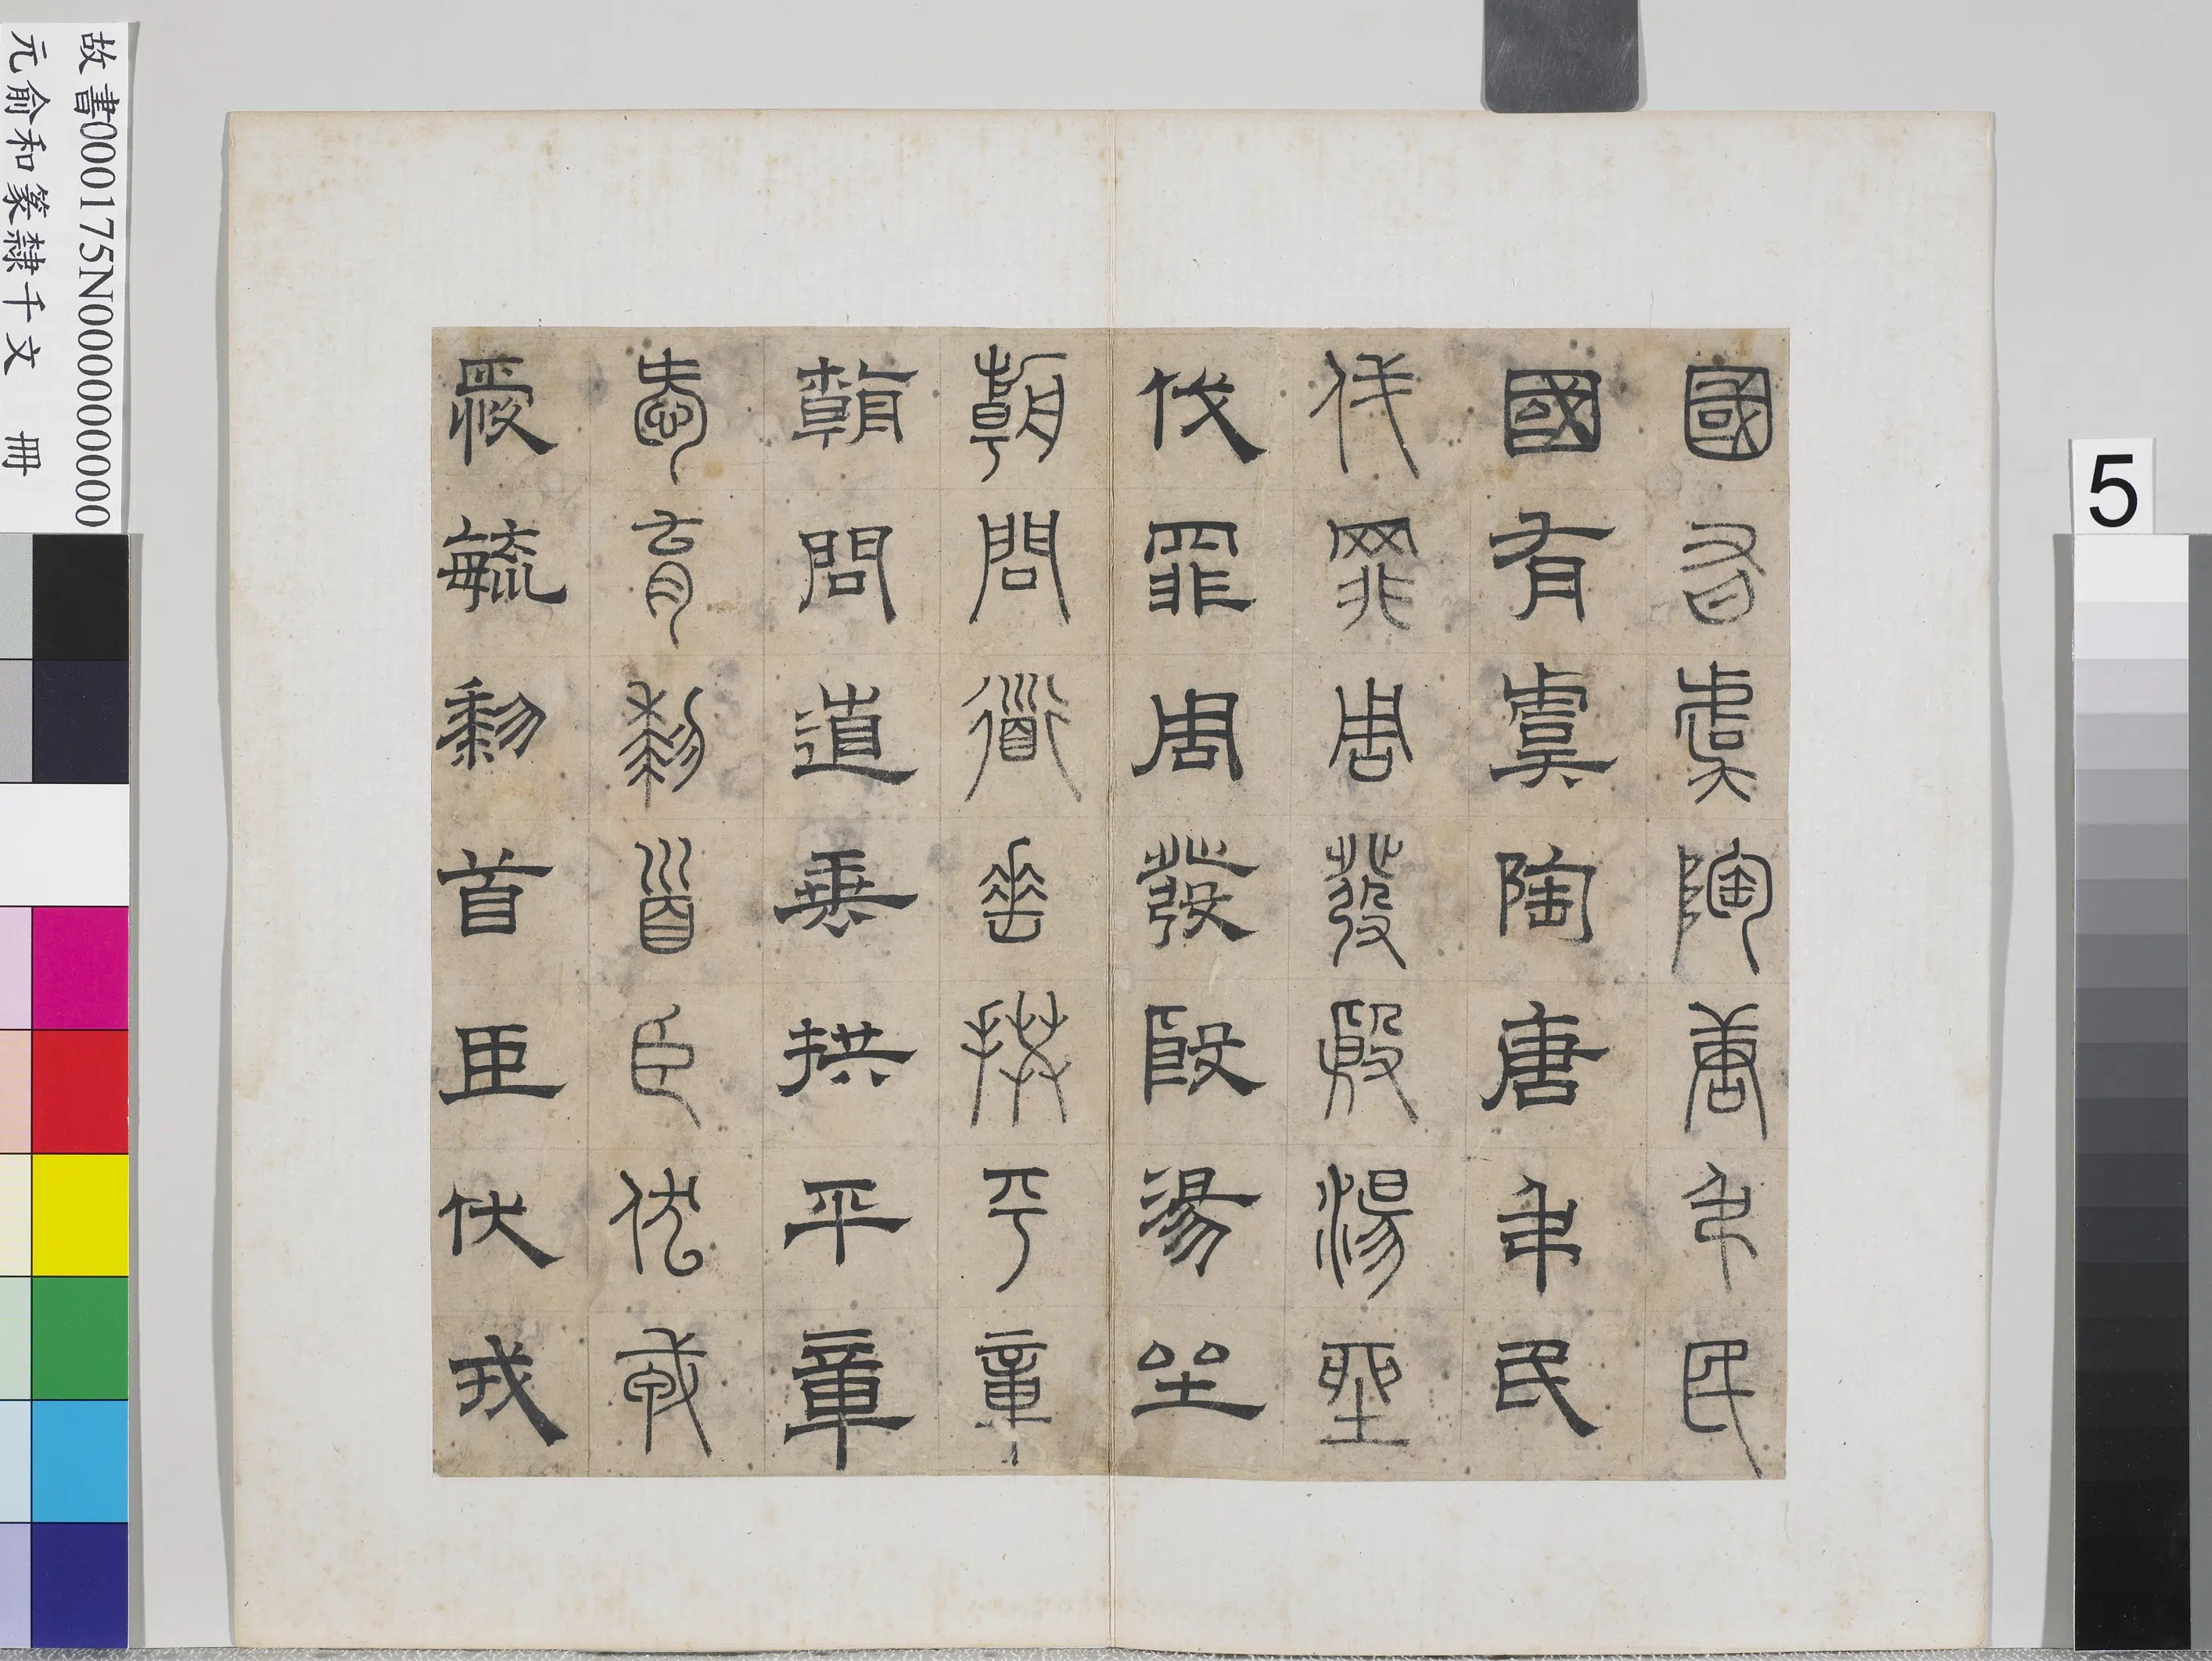 國有虞陶唐弔民
國有虞陶唐弔民
伐罪周發殷湯坐
伐罪周發殷湯坐
朝問道垂拱平章
朝問道垂拱平章
愛育黎首臣伏戎
愛毓黎首臣伏戎
故書000175N000000000
元俞和篆隸千文 冊
5